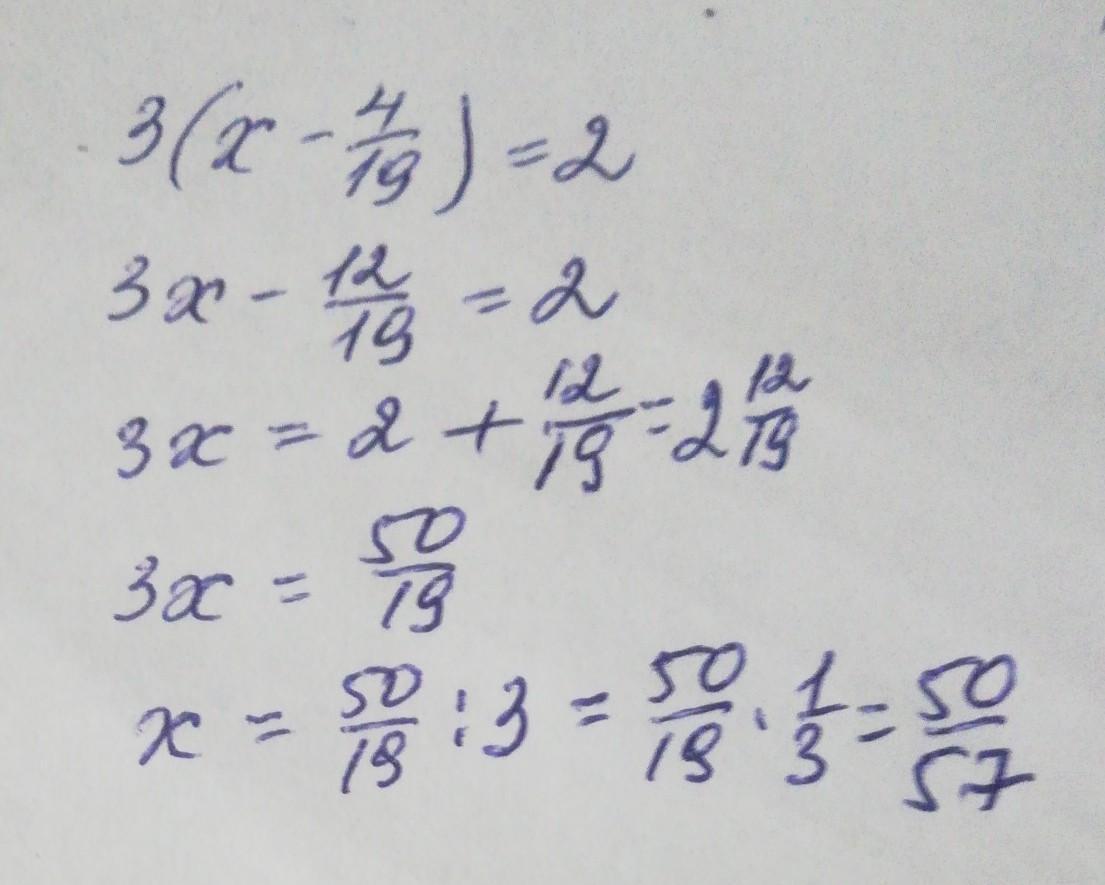 3(x - 4/19) = 2
3x - 12/19 = 2
3x = 2 + 12/19 = 2 12/19
3x = 50/19
x = 50/19 : 3 = 50/19 · 1/3 = 50/57